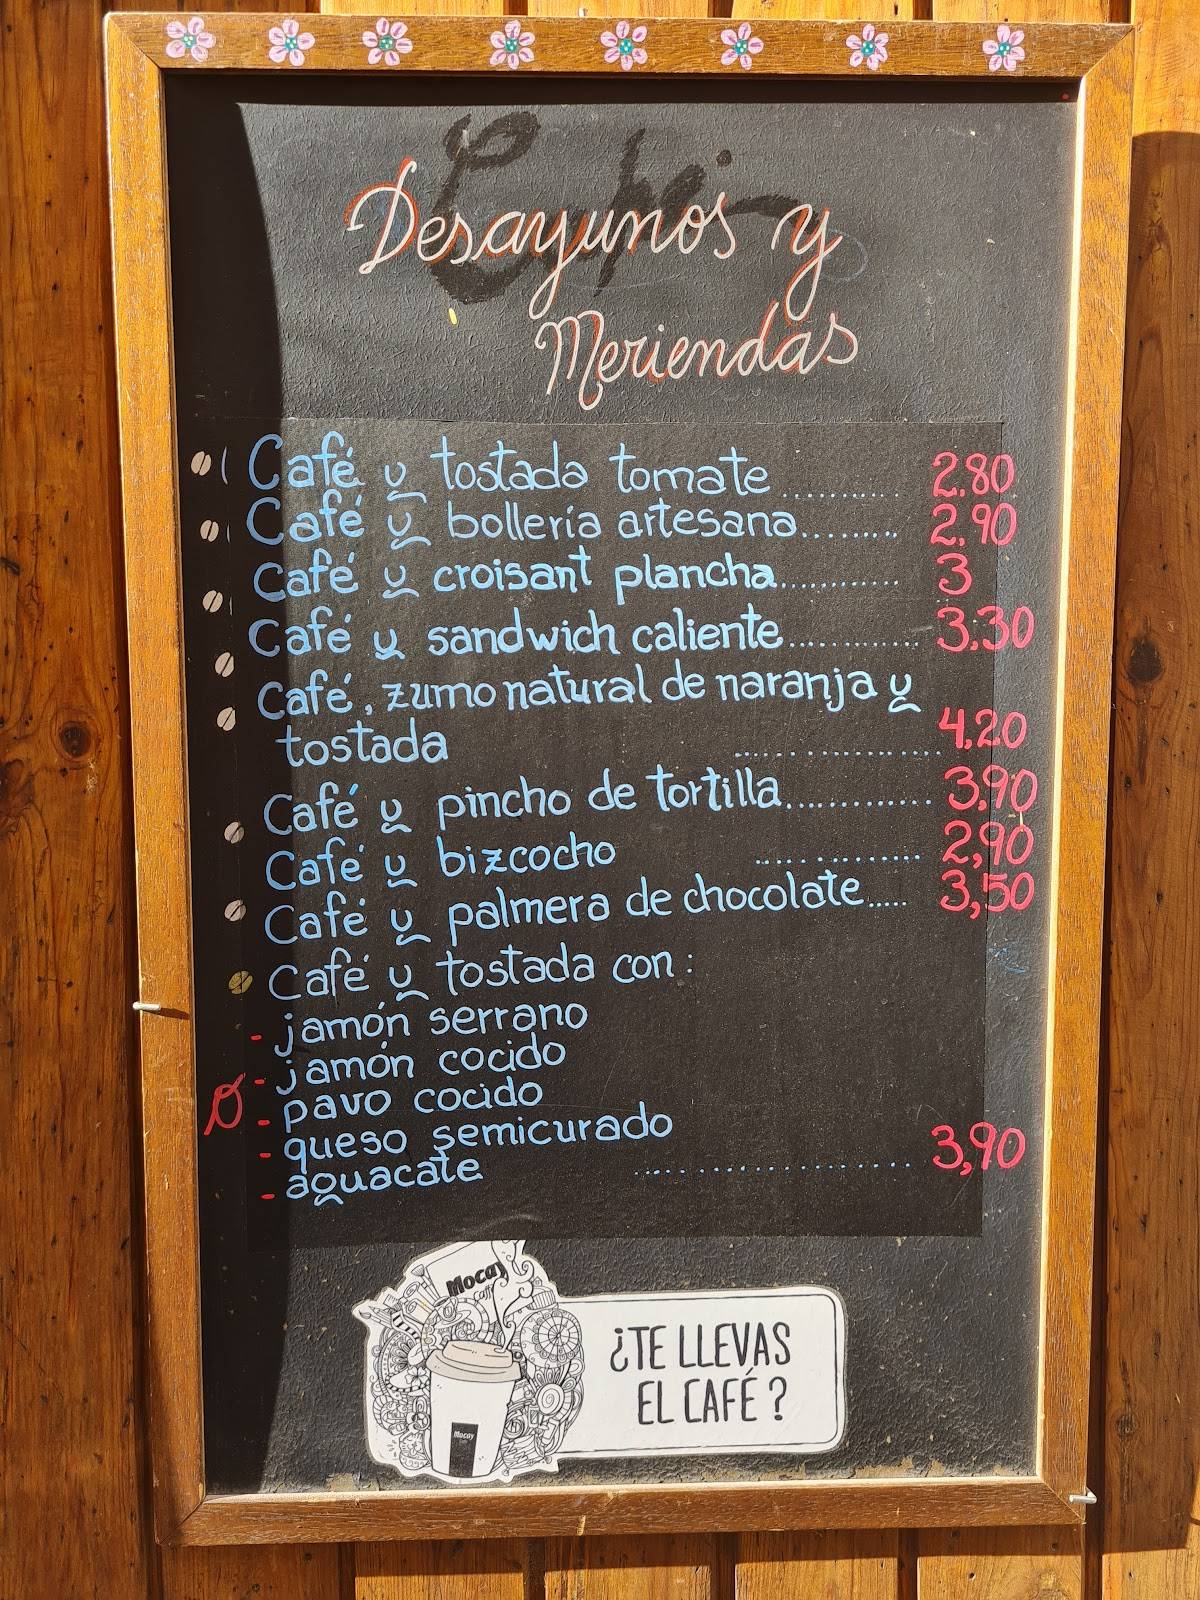 Desayunos y
Meriendas
Café y tostada tomate .......... 2.80
Café y bollería artesana......... 2.90
Café y croisant plancha............ 3
Café y sandwich caliente............ 3.30
Café, zumo natural de naranja y
tostada .................. 4,20
Café y pincho de tortilla............. 3,90
Café y bizcocho ............... 2,90
Café y palmera de chocolate..... 3,50
Café y tostada con:
- jamón serrano
- jamón cocido
Ó - pavo cocido
- queso semicurado
- aguacate ........................ 3,90
Mocay
Caffè
¿TE LLEVAS
EL CAFÉ?
Mocay